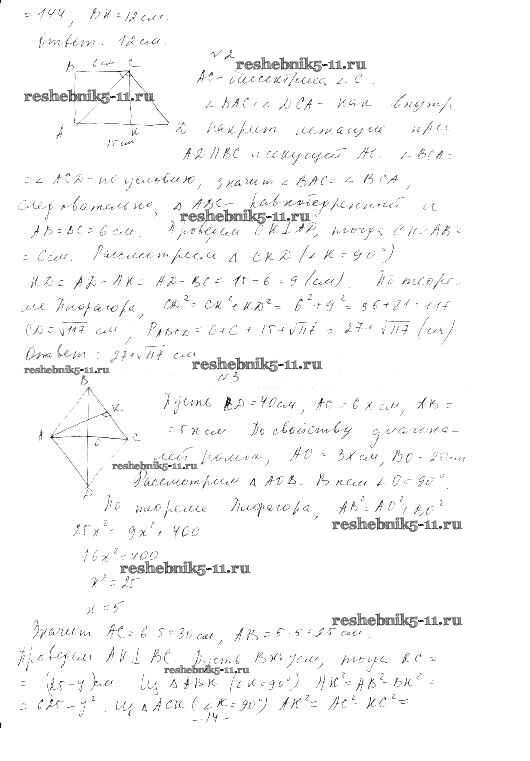 = 144, BH = 12 см.
Ответ: 12 см.
№2
reshebnik5-11.ru
B 6 см C
AC - биссектриса ∠C.
reshebnik5-11.ru
∠BAC = ∠DCA - как внутр
A K D
15 см
накрест лежащие при
AD ∥ BC и секущей AC. ∠BCA =
= ∠ACD - по условию, значит ∠BAC = ∠BCA,
следовательно, △ ABC - равнобедренный и
reshebnik5-11.ru
AB = BC = 6 см. Проведем CK ⊥ AD, тогда CK = AB =
= 6 см. Рассмотрим △ CKD (∠K = 90°)
KD = AD - AK = AD - BC = 15 - 6 = 9 (см). По теоре-
ме Пифагора, CD² = CK² + KD² = 6² + 9² = 36 + 81 = 117
CD = √117 см, P ABCD = 6 + 6 + 15 + √117 = 27 + √117 (см)
Ответ: 27 + √117 см
reshebnik5-11.ru
reshebnik5-11.ru
№3
B
K
A O C
D
Пусть BD = 40 см, AC = 6x см, AB =
= 5x см По свойству диагона-
лей ромба, AO = 3x см, BO = 20 см
reshebnik5-11.ru
Рассмотрим △ AOB. В нем ∠O = 90°.
По теореме Пифагора, AB² = AO² + BO²
reshebnik5-11.ru
25x² = 9x² + 400
16x² = 400
reshebnik5-11.ru
x² = 25
x = 5
reshebnik5-11.ru
Значит AC = 6·5 = 30 см, AB = 5·5 = 25 см.
Проведем AK ⊥ BC. Пусть BK = y см, тогда KC =
reshebnik5-11.ru
= (25 - y) см. Из △ ABK (∠K = 90°) AK² = AB² - BK² =
= 625 - y². Из △ ACK (∠K = 90°) AK² = AC² - KC² =
- 14 -